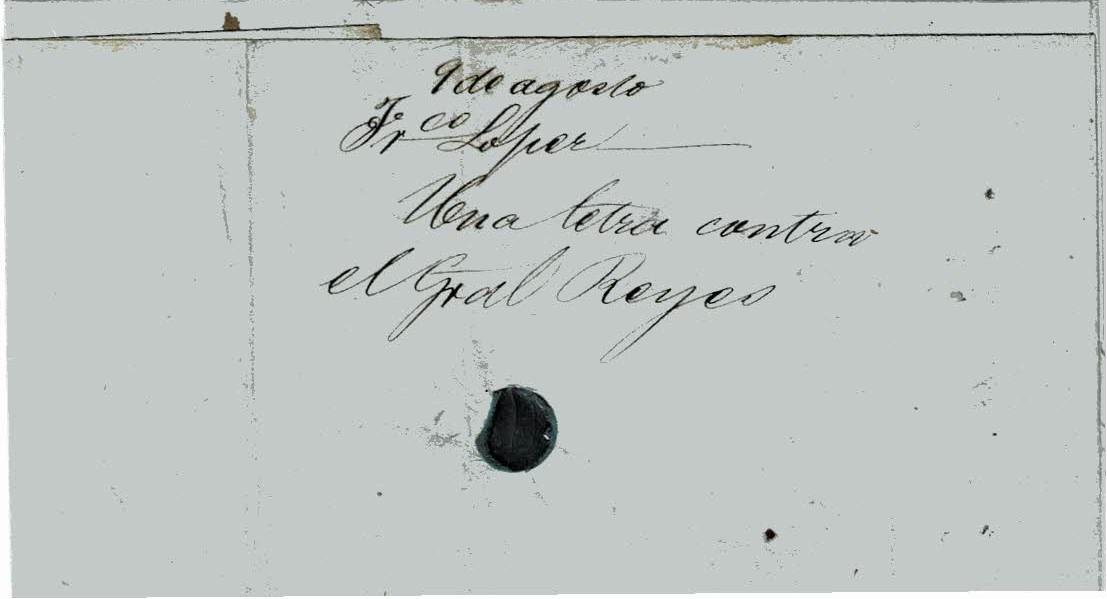 9 de agosto
Frco Lopez
Una letra contra
el Gral Reyes